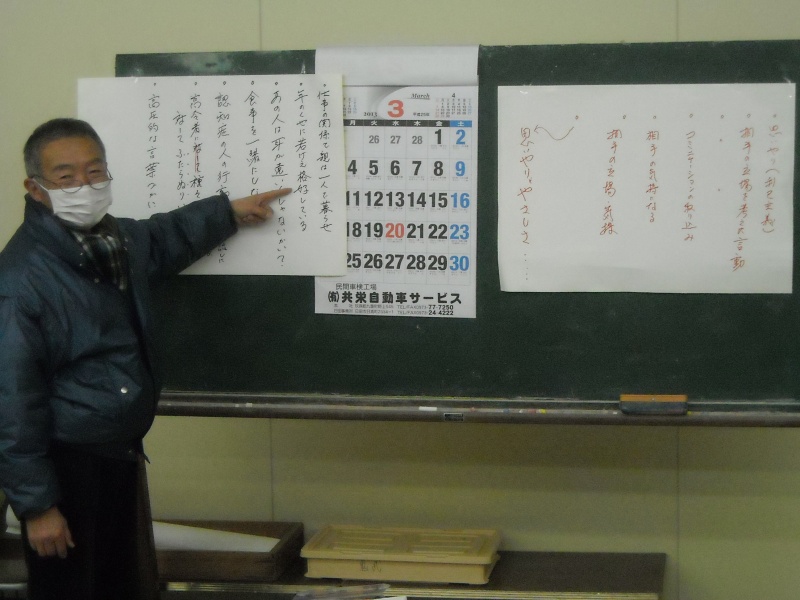 仕事の関係で親は一人で暮らせ
年のくせに若げえ格好している
あの人は耳が遠い
じゃないかい?
食事を一緒に
認知症の人の行
高令者に
対して
高圧的な言葉づかい
2013 3 March 平成25年 4
月 火 水 木 金 土
26 27 28 1 2
4 5 6 7 8 9
11 12 13 14 15 16
18 19 20 21 22 23
25 26 27 28 29 30
民間車検工場
(有)共栄自動車サービス
77-7250
24-4222
思いやり(利己主義)
相手の立場を考えた言動
コミニケーションの取り込み
相手の気持になる
相手の立場 気持
思いやり、やさしさ……